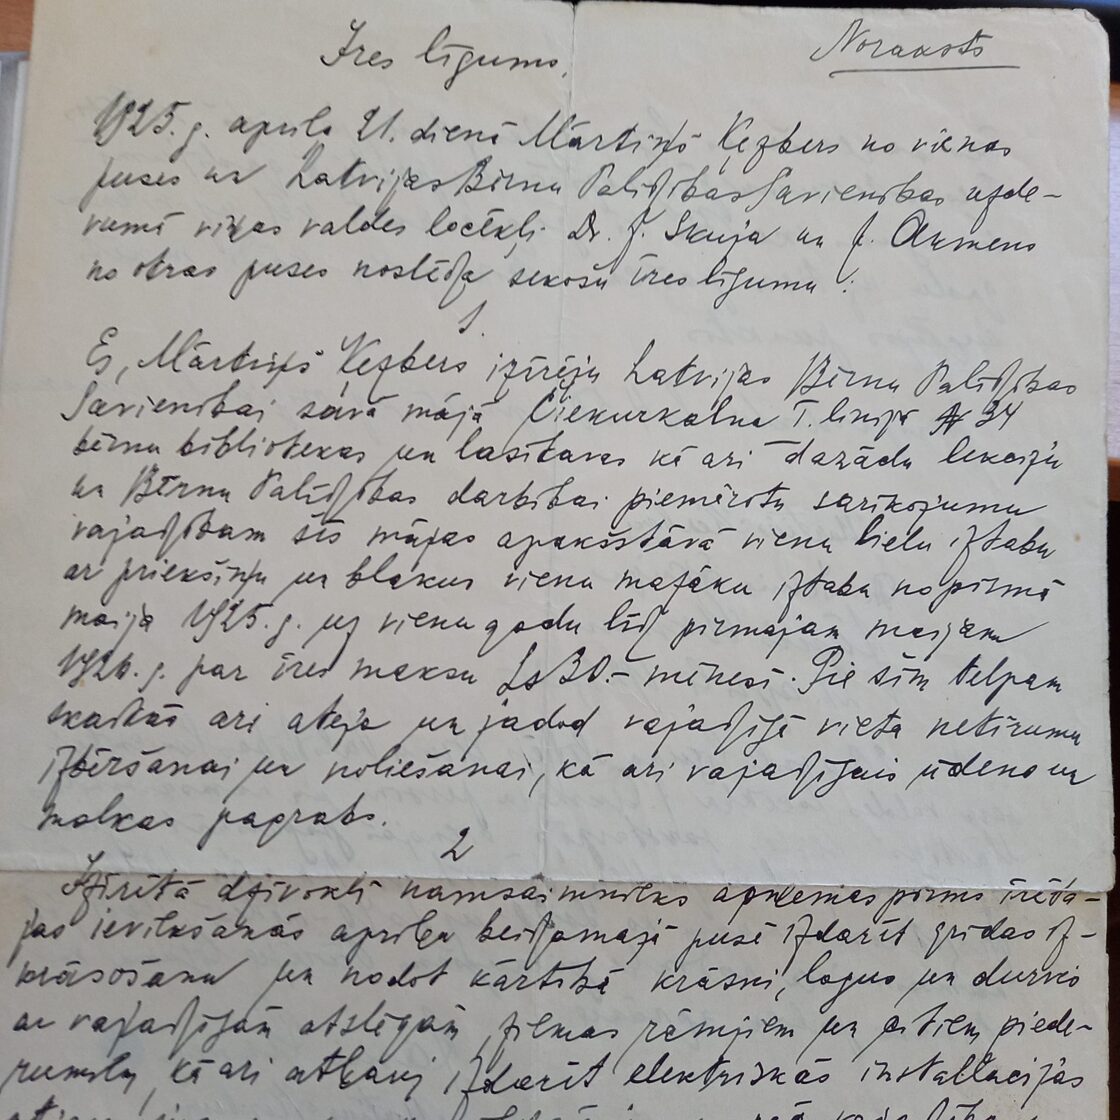 Īres līgums.
Noraksts
1925. g. aprīļa 21. dienā Mārtiņš Ķezbers no vienas
puses un Latvijas Bērnu Palīdzības Savienības uzde-
vumā viņas valdes locekļi Dr. J. Skuja un J. Akmens
no otras puses noslēdza sekošu īres līgumu:
1.
Es, Mārtiņš Ķezbers izīrēju Latvijas Bērnu Palīdzības
Savienībai savā mājā Čiekurkalna I. linijā № 34
bērnu bibliotekas un lasītavas kā arī dažādu lekciju
un Bērnu Palīdzības darbībai piemērotu sarīkojumu
vajadzībam šīs mājas apakšstāvā vienu lielu iztabu
ar priekšiņu un blakus vienu mazāku iztabu no pirmā
maija 1925. g. uz vienu gadu līdz pirmajam maijam
1926. g. par īres maksu Ls 30.- mēnesī. Pie šīm telpam
skaitās arī ateja un jadod vajadzīgā vieta netīrumu
izbēršanai un noliešanai, kā arī vajadzīgais ūdens un
malkas pagrabs.
2
Izīrētā dzīvoklī namsaimnieks apņemas pirms īrētā-
jas ievilkšanās aprīļa beidzamajā pusē izdarīt grīdas iz-
krāsošanu un nodot kārtībā krāsni, logus un durvis
ar vajadzīgām atslēgām, ziemas rāmjiem un citiem piede-
rumiem, kā arī atļauj izdarīt elektriskās installacijas